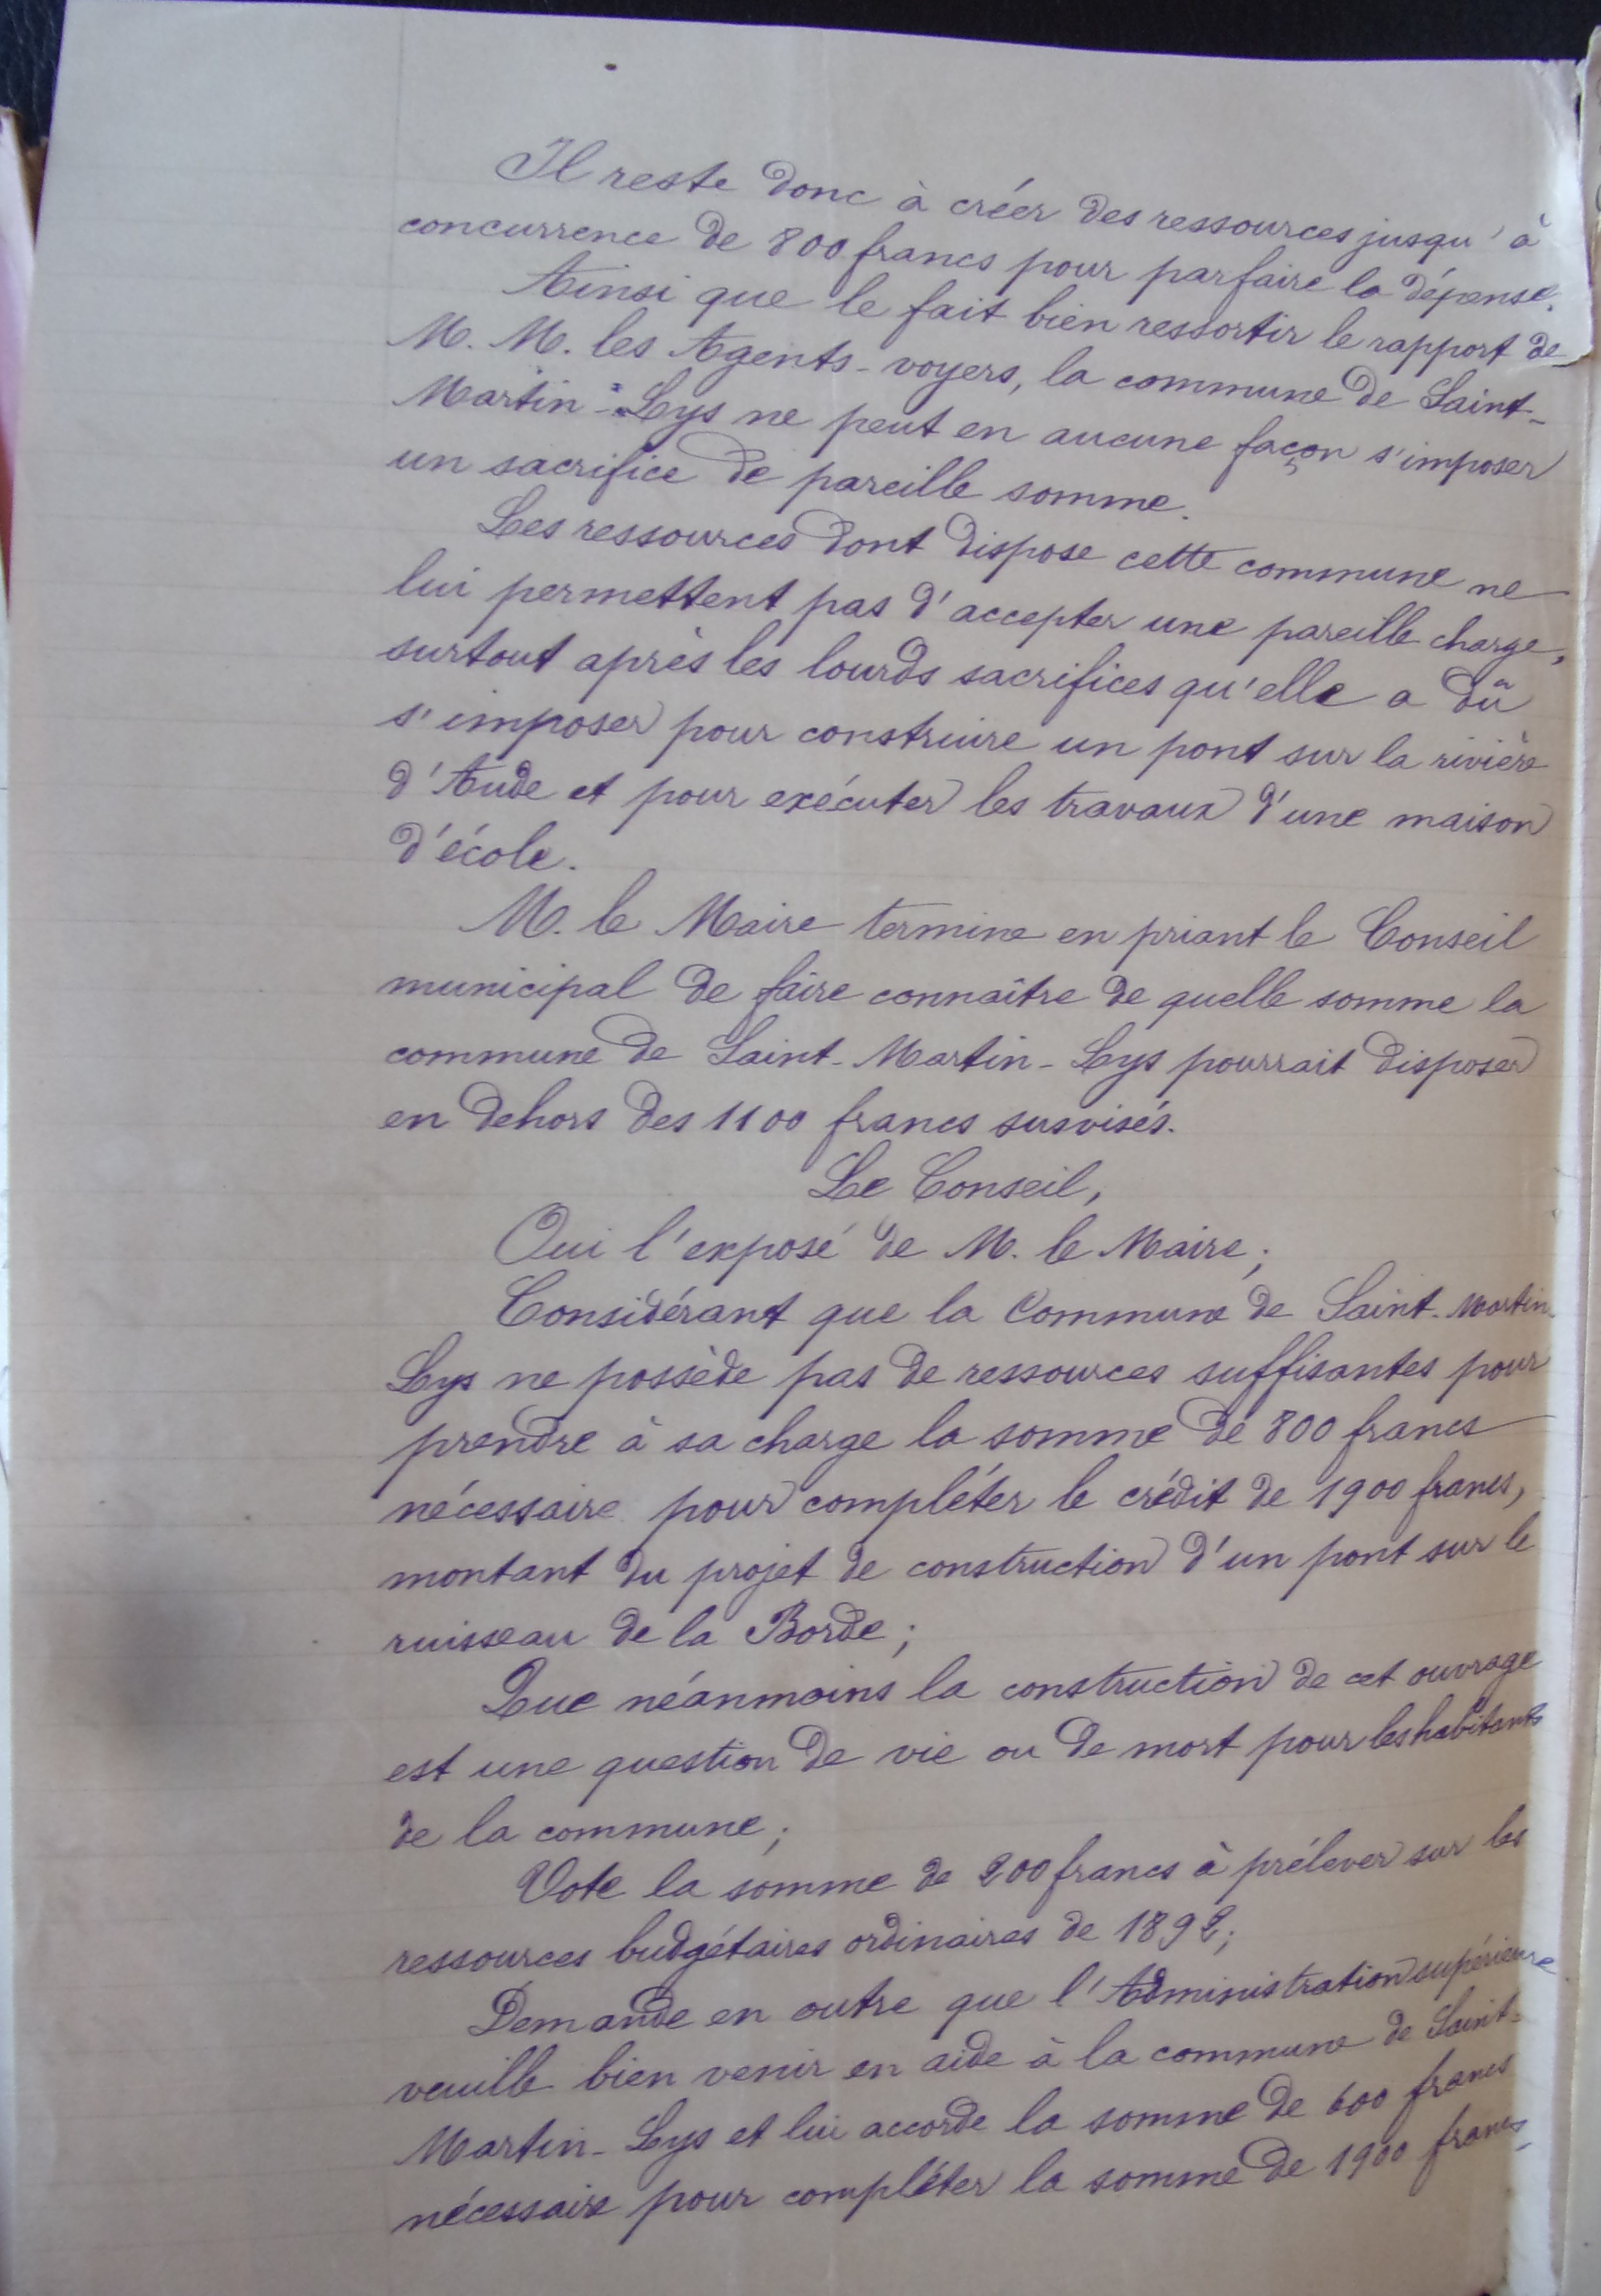 Il reste donc à créer des ressources jusqu'à
concurrence de 800 francs pour parfaire la dépense.
Ainsi que le fait bien ressortir le rapport de
M. M. les Agents-voyers, la commune de Saint-
Martin-Lys ne peut en aucune façon s'imposer
un sacrifice de pareille somme.
Les ressources dont dispose cette commune ne
lui permettent pas d'accepter une pareille charge,
surtout après les lourds sacrifices qu'elle a dû
s'imposer pour construire un pont sur la rivière
d'Aude et pour exécuter les travaux d'une maison
d'école.
M. le Maire termine en priant le Conseil
municipal de faire connaître de quelle somme la
commune de Saint-Martin-Lys pourrait disposer
en dehors des 1100 francs susvisés.
Le Conseil,
Oui l'exposé de M. le Maire;
Considérant que la Commune de Saint-Martin-
Lys ne possède pas de ressources suffisantes pour
prendre à sa charge la somme de 800 francs
nécessaire pour compléter le crédit de 1900 francs,
montant du projet de construction d'un pont sur le
ruisseau de la Borde;
Que néanmoins la construction de cet ouvrage
est une question de vie ou de mort pour les habitants
de la commune;
Vote la somme de 200 francs à prélever sur les
ressources budgétaires ordinaires de 1892;
Demande en outre que l'Administration supérieure
veuille bien venir en aide à la commune de Saint-
Martin-Lys et lui accorde la somme de 600 francs
nécessaire pour compléter la somme de 1900 francs,